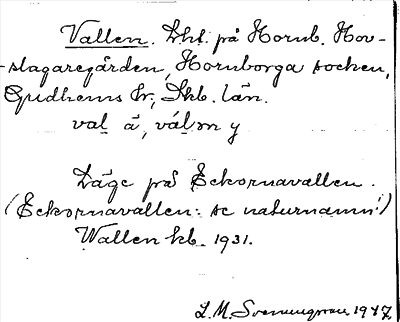 Vallen. Lht. på Hornb. Hov-
slagaregården, Hornborga socken,
Gudhems hr, Skb. län.
val å, válṃ y
Läge på Eckornavallen.
(Eckornavallen: se naturnamn!)
Wallen kb. 1931.
L.M. Svenungsson 1947